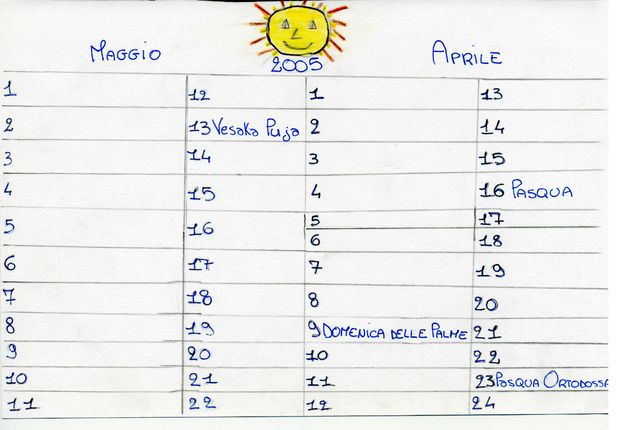 MAGGIO 2005 APRILE
1 12 1 13
2 13 Vesaka Puja 2 14
3 14 3 15
4 15 4 16 PASQUA
5 16 5 17
6 18
6 17 7 19
7 18 8 20
8 19 9 DOMENICA DELLE PALME 21
9 20 10 22
10 21 11 23 PASQUA ORTODOSSA
11 22 12 24